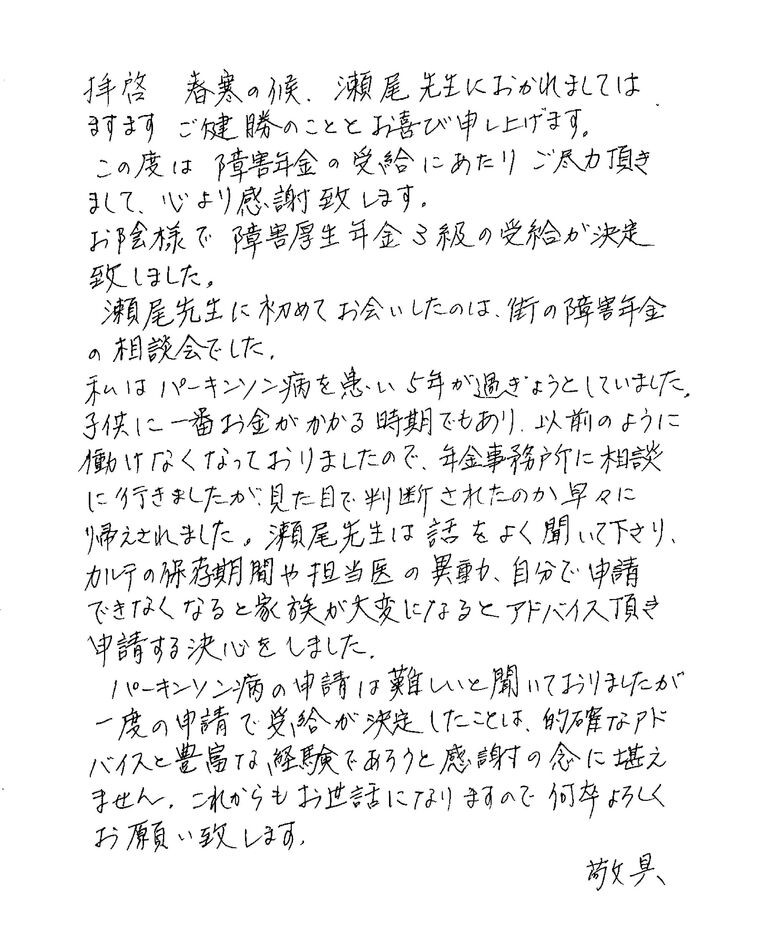 拝啓　春寒の候、瀬尾先生におかれましては
ますます ご健勝のこととお喜び申し上げます。
この度は 障害年金の受給にあたり ご尽力頂き
まして、心より感謝致します。
お陰様で 障害厚生年金3級の受給が決定
致しました。
瀬尾先生に初めてお会いしたのは、街の障害年金
の相談会でした。
私はパーキンソン病を患い5年が過ぎようとしていました。
子供に一番お金がかかる時期でもあり、以前のように
働けなくなっておりましたので、年金事務所に相談
に行きましたが、見た目で判断されたのか早々に
帰えされました。瀬尾先生は話をよく聞いて下さり、
カルテの保存期間や担当医の異動、自分で申請
できなくなると家族が大変になるとアドバイス頂き
申請する決心をしました。
パーキンソン病の申請は難しいと聞いておりましたが
一度の申請で受給が決定したことは、的確なアド
バイスと豊富な経験であろうと感謝の念に堪え
ません。これからもお世話になりますので何卒よろしく
お願い致します。
敬具、